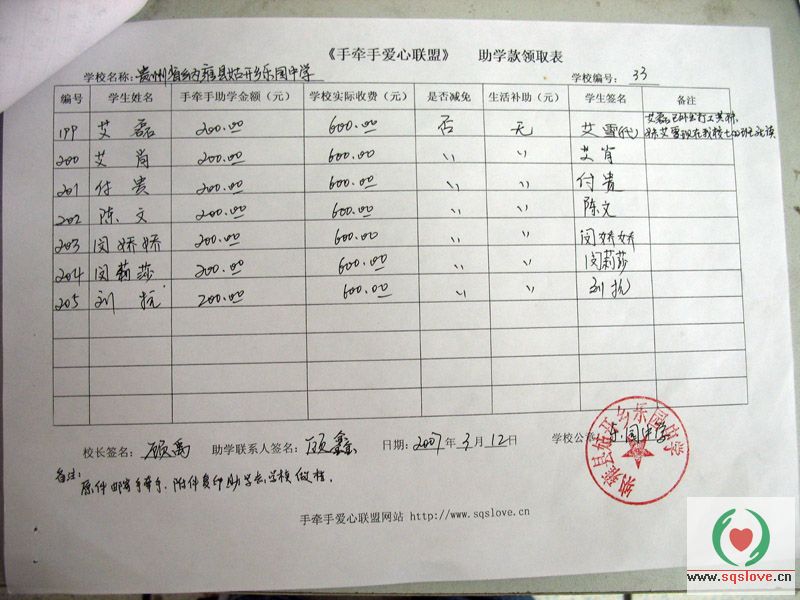 《手牵手爱心联盟》 助学款领取表
学校名称: 贵州省纳雍县姑开乡乐园中学 学校编号: 33
编号 学生姓名 手牵手助学金额（元） 学校实际收费（元） 是否减免 生活补助（元） 学生签名 备注
199 艾磊 200.00 600.00 否 无 艾雪(代) 艾磊已外出打工,其妹
妹艾雪现在我校七(1)班就读
200 艾肖 200.00 600.00 〃 〃 艾肖
201 付贵 200.00 600.00 〃 〃 付贵
202 陈文 200.00 600.00 〃 〃 陈文
203 闵娇娇 200.00 600.00 〃 〃 闵娇娇
204 闵莉莎 200.00 600.00 〃 〃 闵莉莎
205 刘抗 200.00 600.00 〃 〃 刘抗
校长签名: 顾禹 助学联系人签名: 顾鑫 日期: 2007年3月12日 学校公章: 乐园中学
纳雍县姑开乡乐园中学
备注: 原件邮寄手牵手.附件复印助学长.学校做档.
手牵手爱心联盟网站 http://www.sqslove.cn
www.sqslove.cn